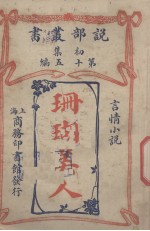 說部叢書
初集
第十五編
言情小說
珊瑚美人
上海
商務印書館發行